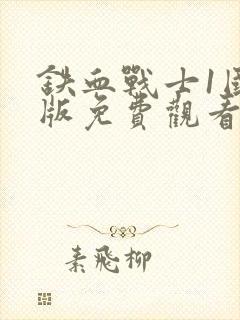 鉄血戰士1國
版免費觀看
素飛柳